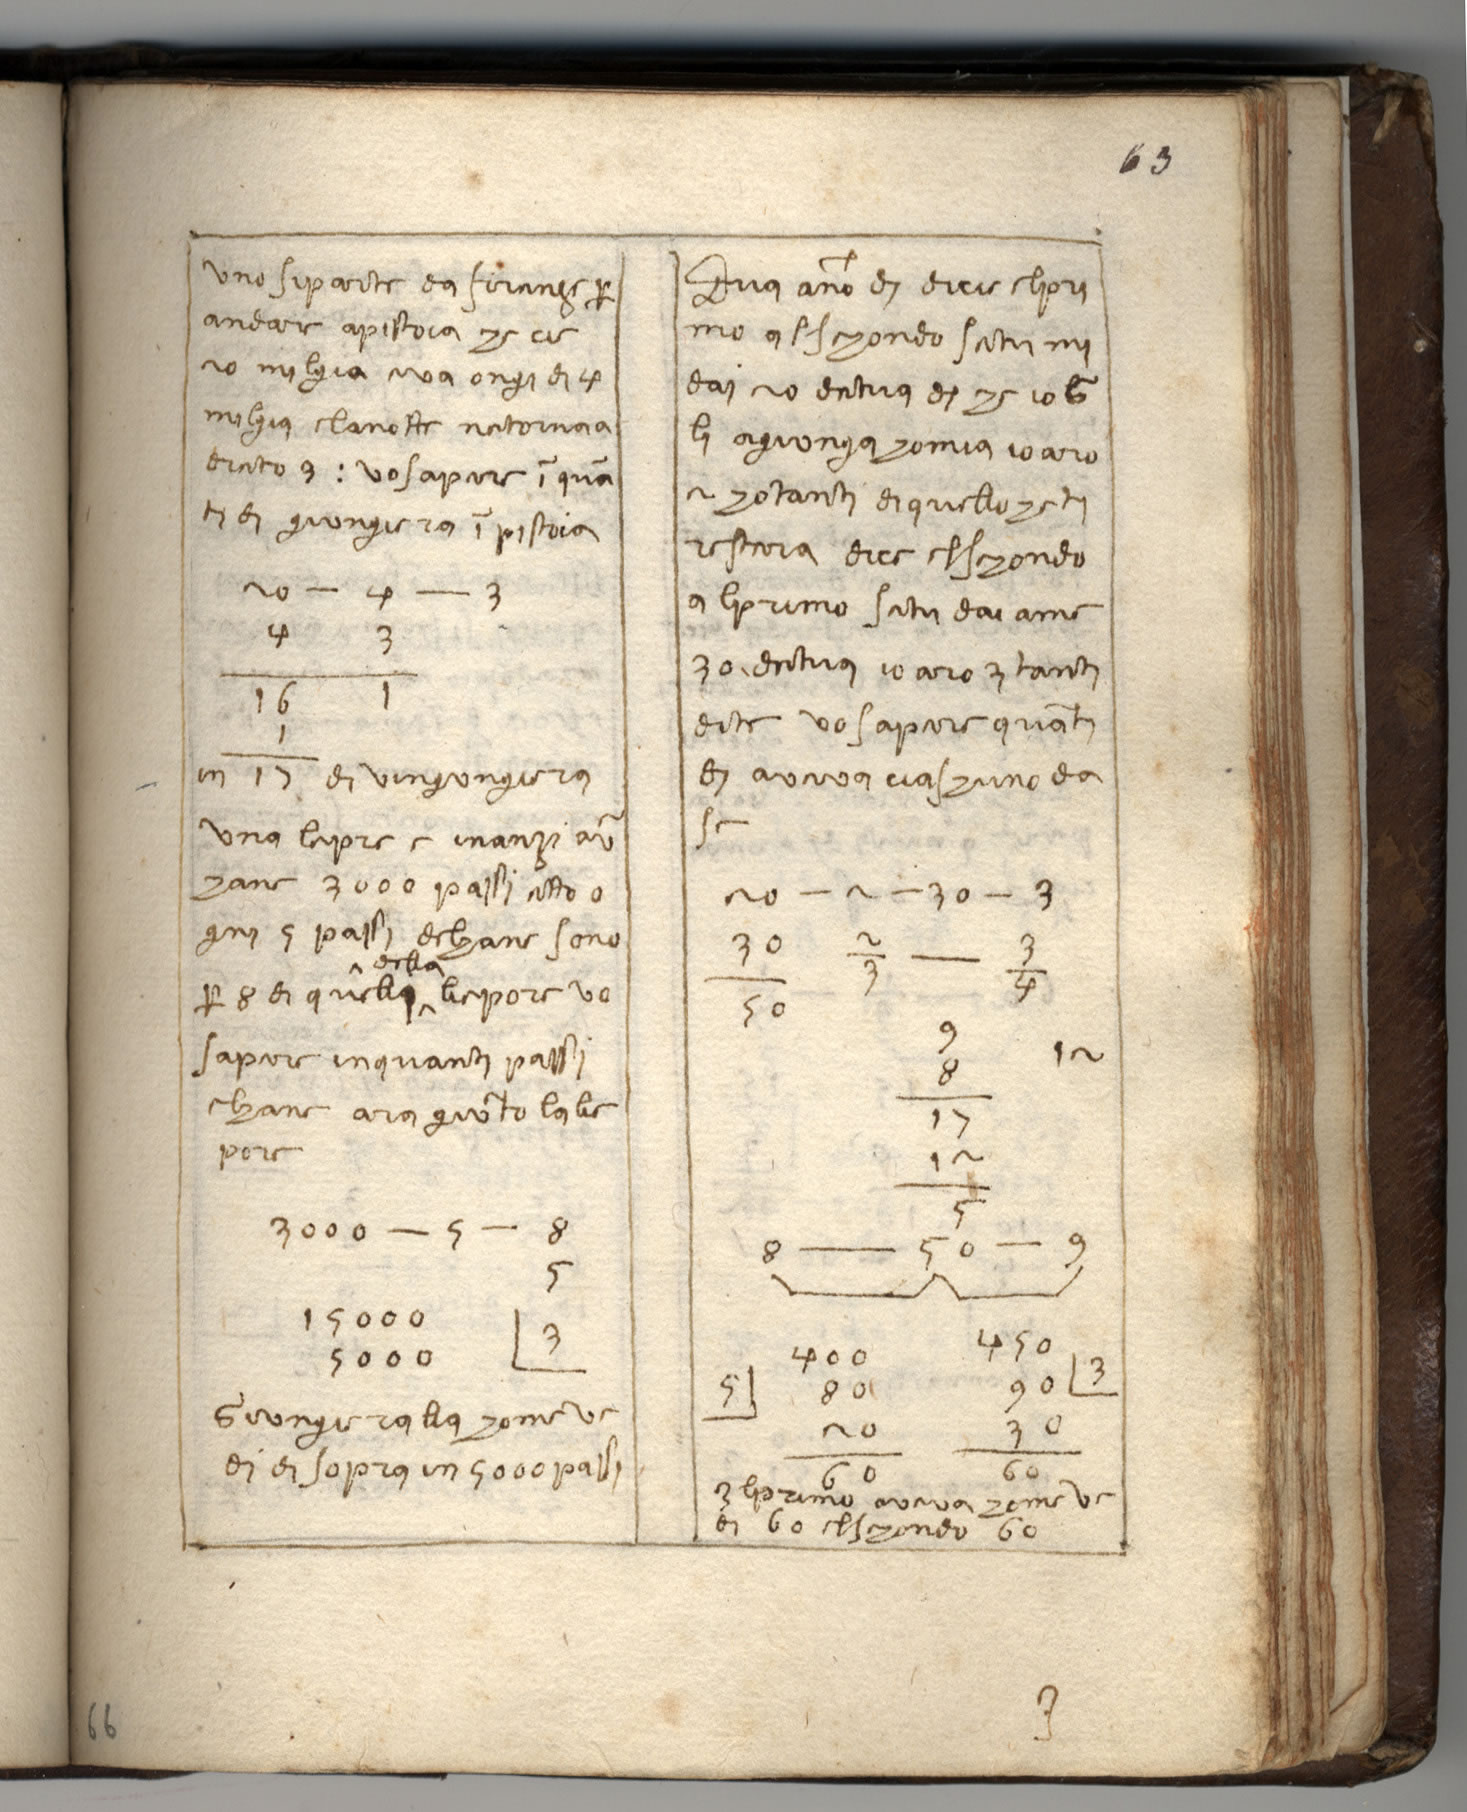 63
uno siparte da firenze p
andare apistoia ce cie
20 miglia eva ongi di 4
miglia elanotte ritorna a
drieto 3 : vo sapere ī quā
ti di giungiera ī pistoia
20 — 4 — 3
4 3
16 1
1
in 17 di vingungiera
una lepre e inanzi aū
cane 3000 passi etto o
gni 5 passi delcane sono
della
p 8 di quella liepore vo
sapere inquanti passi
elcane ara giūto lalie
pore
3000 — 5 — 8
5
15000
5000 3
Giungieralla come ve
di di sopra in 5000 passi
Dua ano di dicie elpri
mo alsecondo settu mi
dai 20 detua di ce io
li agiunga comia io aro
2 cotanti di quello ceti
restera dice elsecondo
alprimo settu dai ame
30 detua io aro 3 tanti
dite vo sapere quāti
di aveva ciascuno da
se
20 — 2 — 30 — 3
30 2/3 — 3/4
50
9
8 12
17
12
5
8 — 50 — 9
400 450
5 80 90 3
20 30
60 60
3lprimo aveva come ve
di 60 elsecondo 60
3
66